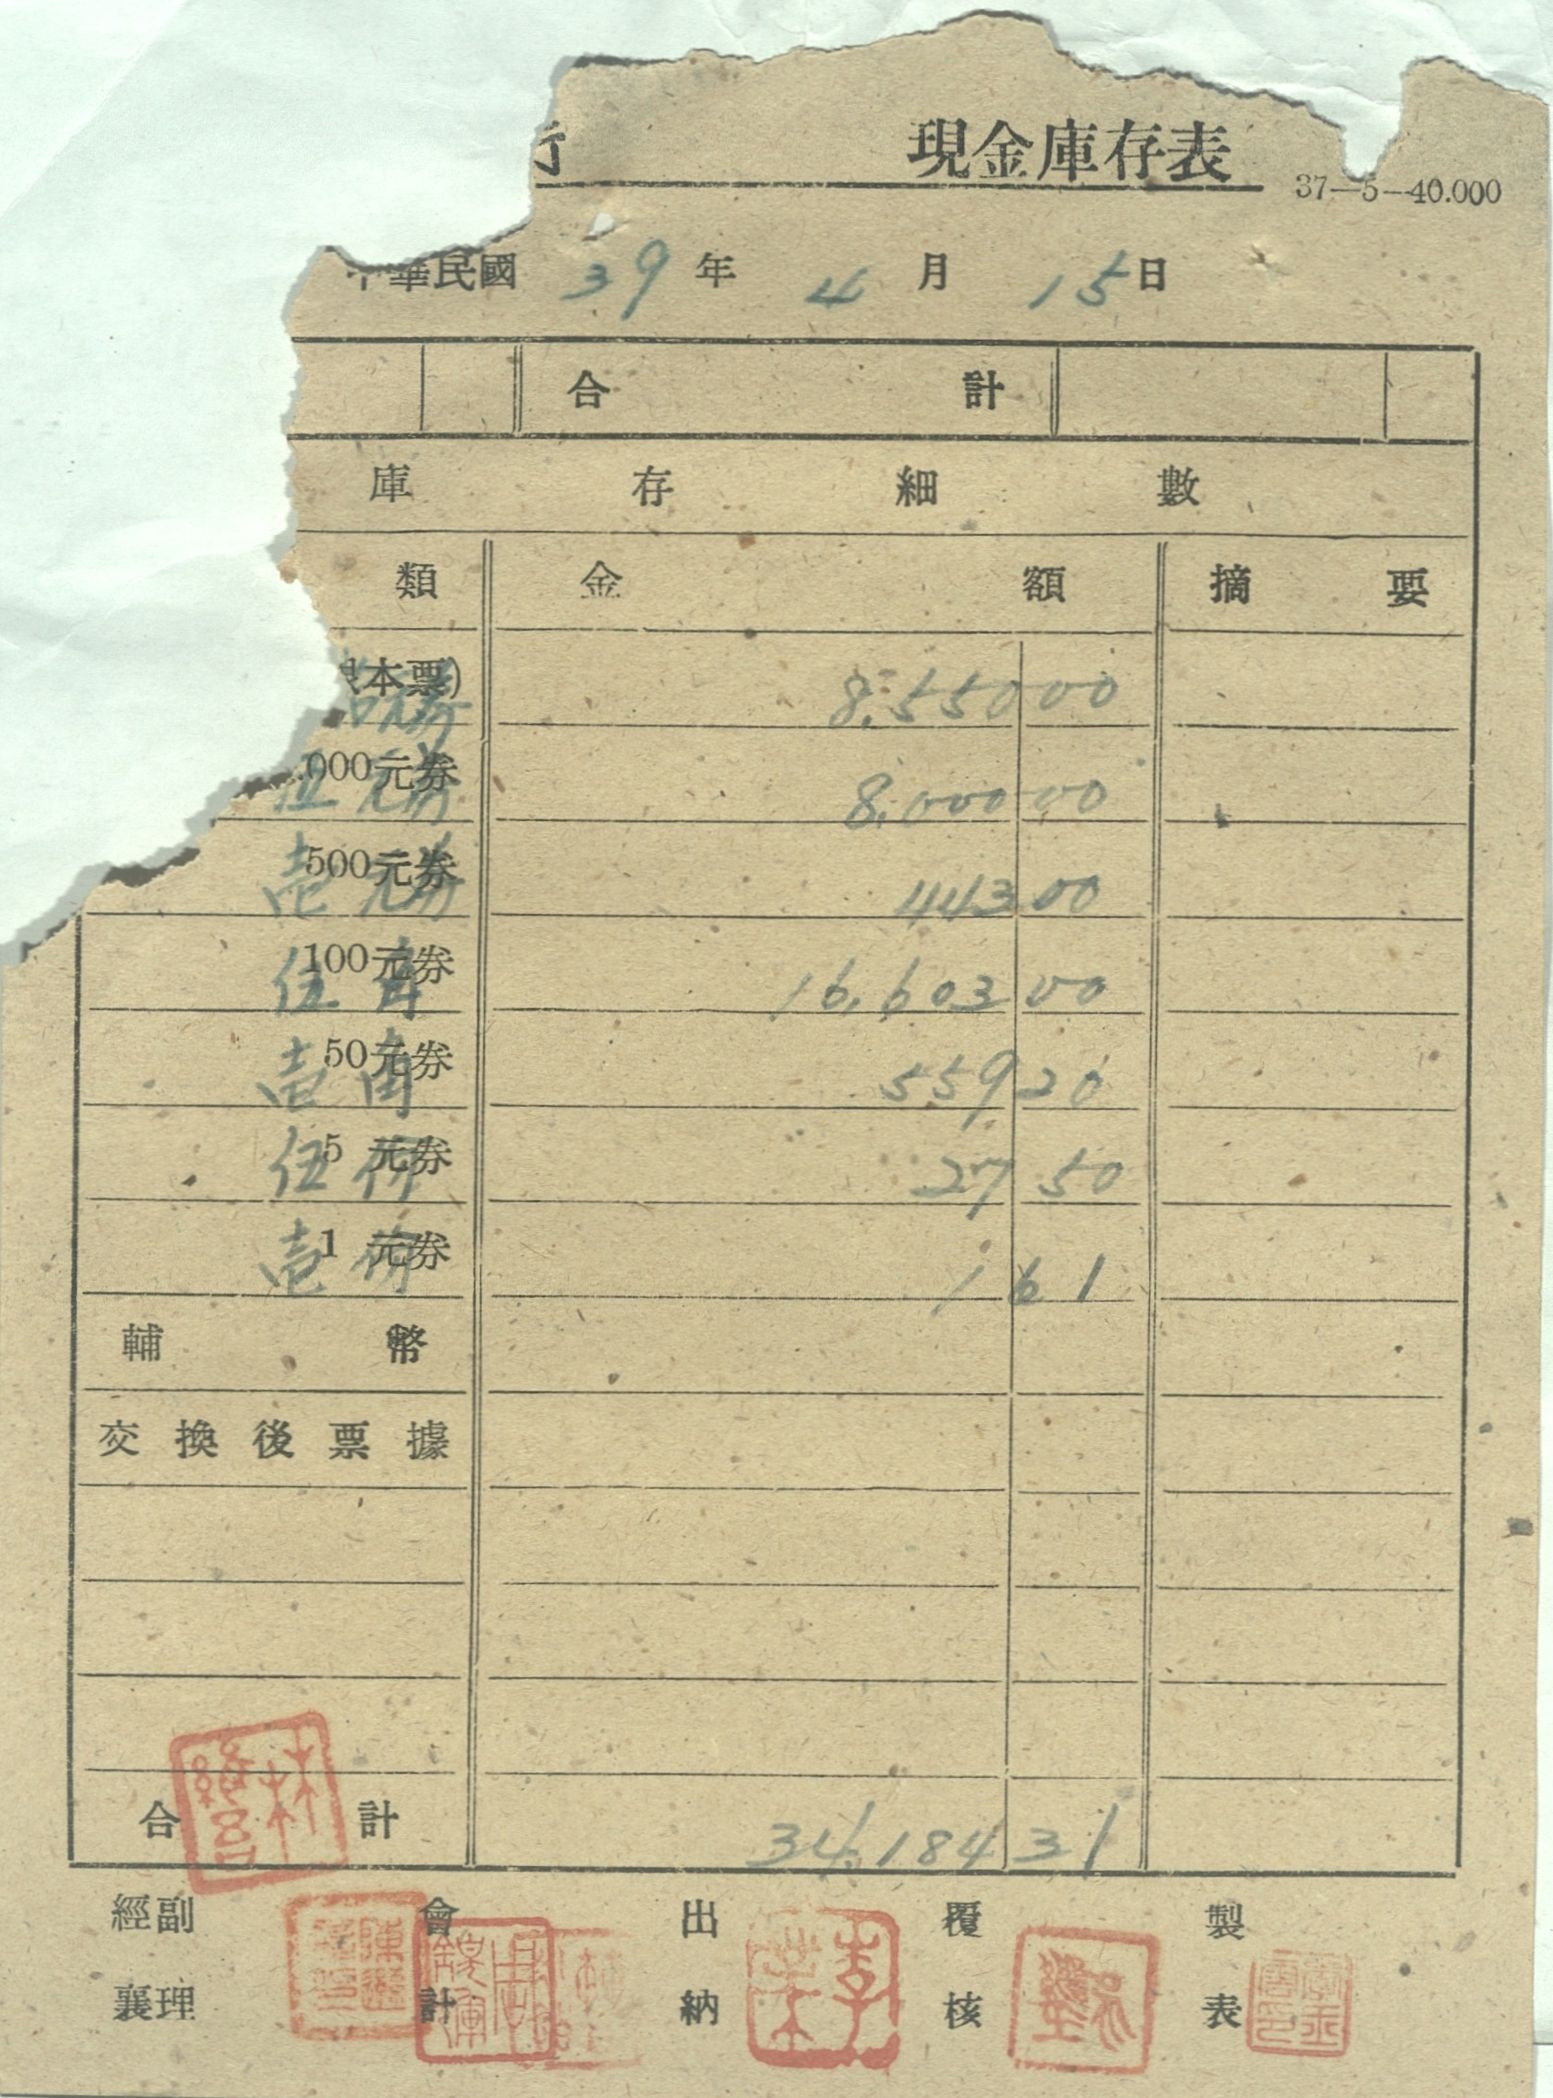 現金庫存表
37—5—40.000
華民國 39 年 4 月 15 日
合計
庫存細數
類 金額 摘要
本票) 拾元券 8,550 00
000元券 伍元券 8,000 00
500元券 壱元券 443 00
100元券 伍角 16,603 00
50元券 壱角 559 20
5元券 伍分 27 50
1元券 壱分 1 61
輔幣
交換後票據
合計 34,184 31
經副襄理 會計 出納 覆核 製表
林
李